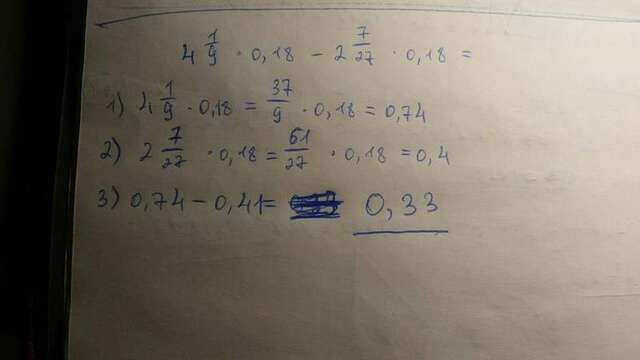 4 1/9 · 0,18 - 2 7/27 · 0,18 =
1) 4 1/9 · 0,18 = 37/9 · 0,18 = 0,74
2) 2 7/27 · 0,18 = 61/27 · 0,18 = 0,4
3) 0,74 - 0,41 = 0,33